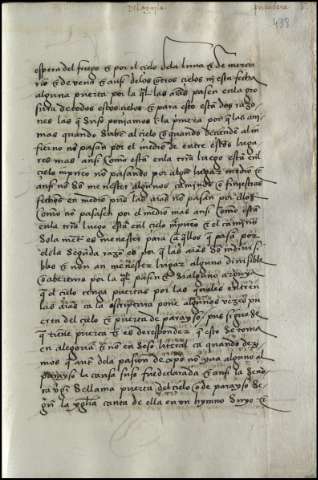 438
espera del fuego & por el cielo dela luna & de mercu
rio & de venus & ansi delos otros cielos ni esta fecha
alguna puerta por la ql las aias pasen en la gro
sura de todos estos cielos & para esto estan dos razo
nes las q de suso posimos la primera por q las ani
mas quando suben al cielo & quando deciende al in
fierno no pasan por el medio de entre estos luga
res mas ansi como esta en la trra luego esta en el
cielo no pasando por algun lugar medio &
ansi no es menester algunos caminos & finiestras
fechos en medio pues las aias no pasan por ellos
como no pasasen por el medio mas ansi como estan
en la trra luego esta en el cielo & el camino
sola mete es menester para aqllos q pasa por
el la segunda razo es por q las aias so indivisi
bles & non an menester lugar alguno divisible
o abertura por la ql pasen & si alguno
q el cielo tenga puertas por las quales entren
las aias ca la escriptura pone algunas vezes pu
erta del cielo & puerta de parayso pues sigue se
q tiene puerta & es de responder q esto se toma
en alegoria & no en seso literal ca quando dezi
mos q ante dela pasion de xpo no yva alguno al
parayso la causa suso fue declarada & ansi la
virge se llama puerta del cielo o de parayso se
gu la yglia canta de ella en un hymno &